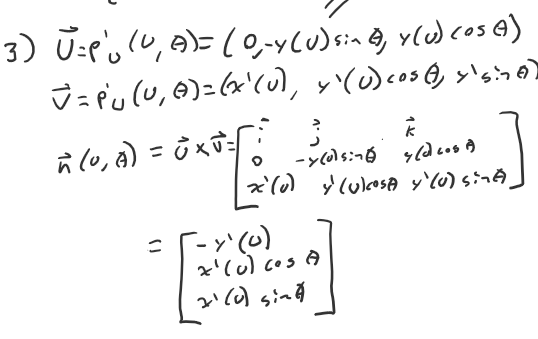 3) U⃗=P'ᵤ(U,θ)=(0,-y(U)sinθ, y(U)cosθ)
V⃗=P'ᵤ(U,θ)=(x'(U), y'(U)cosθ, y'sinθ)
n⃗(U,θ) = U⃗×V⃗=[i⃗ j⃗ k⃗
0 -y(U)sinθ y(U)cosθ
x'(U) y'(U)cosθ y'(U)sinθ]
= [-y'(U)
x'(U) cosθ
x'(U) sinθ]